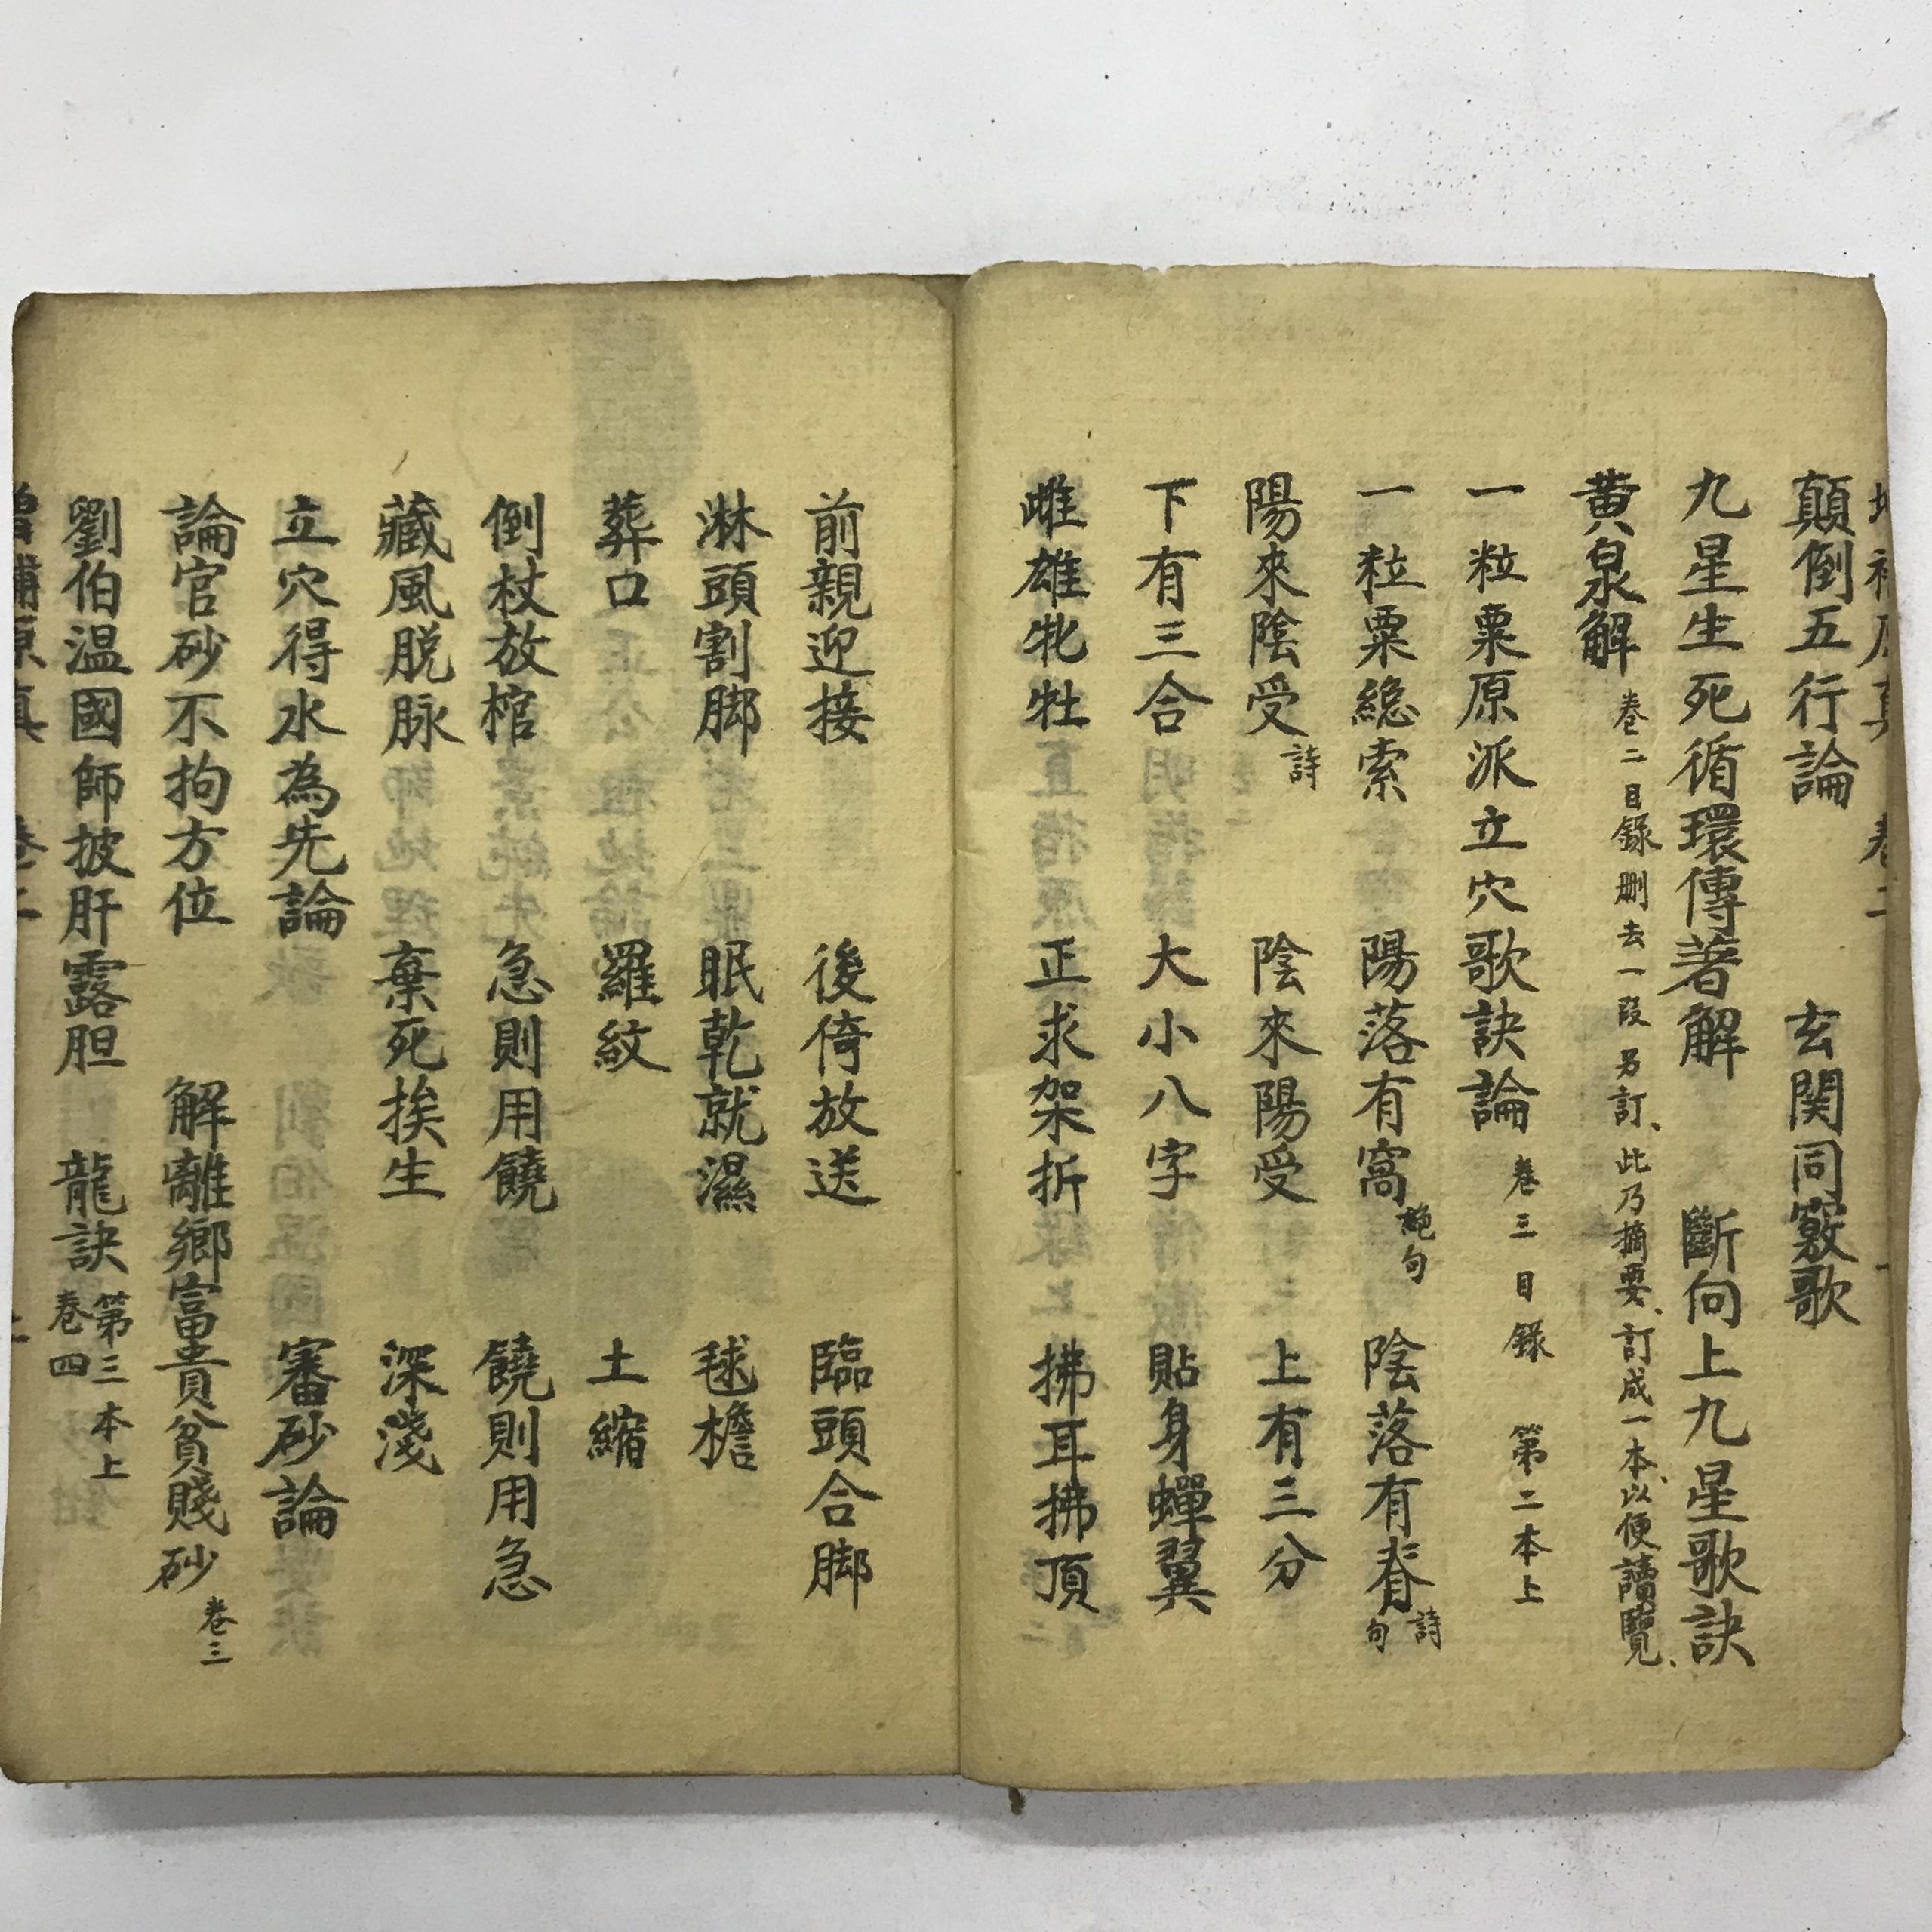 顛倒五行論　玄関同竅歌
九星生死循環傳著解　斷向上九星歌訣
黄泉解　卷二目錄删去一段另訂、此乃摘要、訂成一本、以便讀覽、
一粒粟原派立穴歌訣論　卷三目錄　第二本上
一粒粟總索　陽落有窩 絶句　陰落有脊 詩句
陽來陰受 詩　陰來陽受　上有三分
下有三合　大小八字　貼身蟬翼
雌雄牝牡　正求架折　拂耳拂頂
前親迎接　後倚放送　臨頭合脚
淋頭割脚　眠乾就濕　毬檐
葬口　羅紋　土縮
倒杖放棺　急則用饒　饒則用急
藏風脱脉　棄死挨生　深淺
立穴得水為先論　審砂論
論官砂不拘方位　解離鄉富貴貧賤砂 卷三
劉伯温國師披肝露胆　龍訣 第三本上 卷四